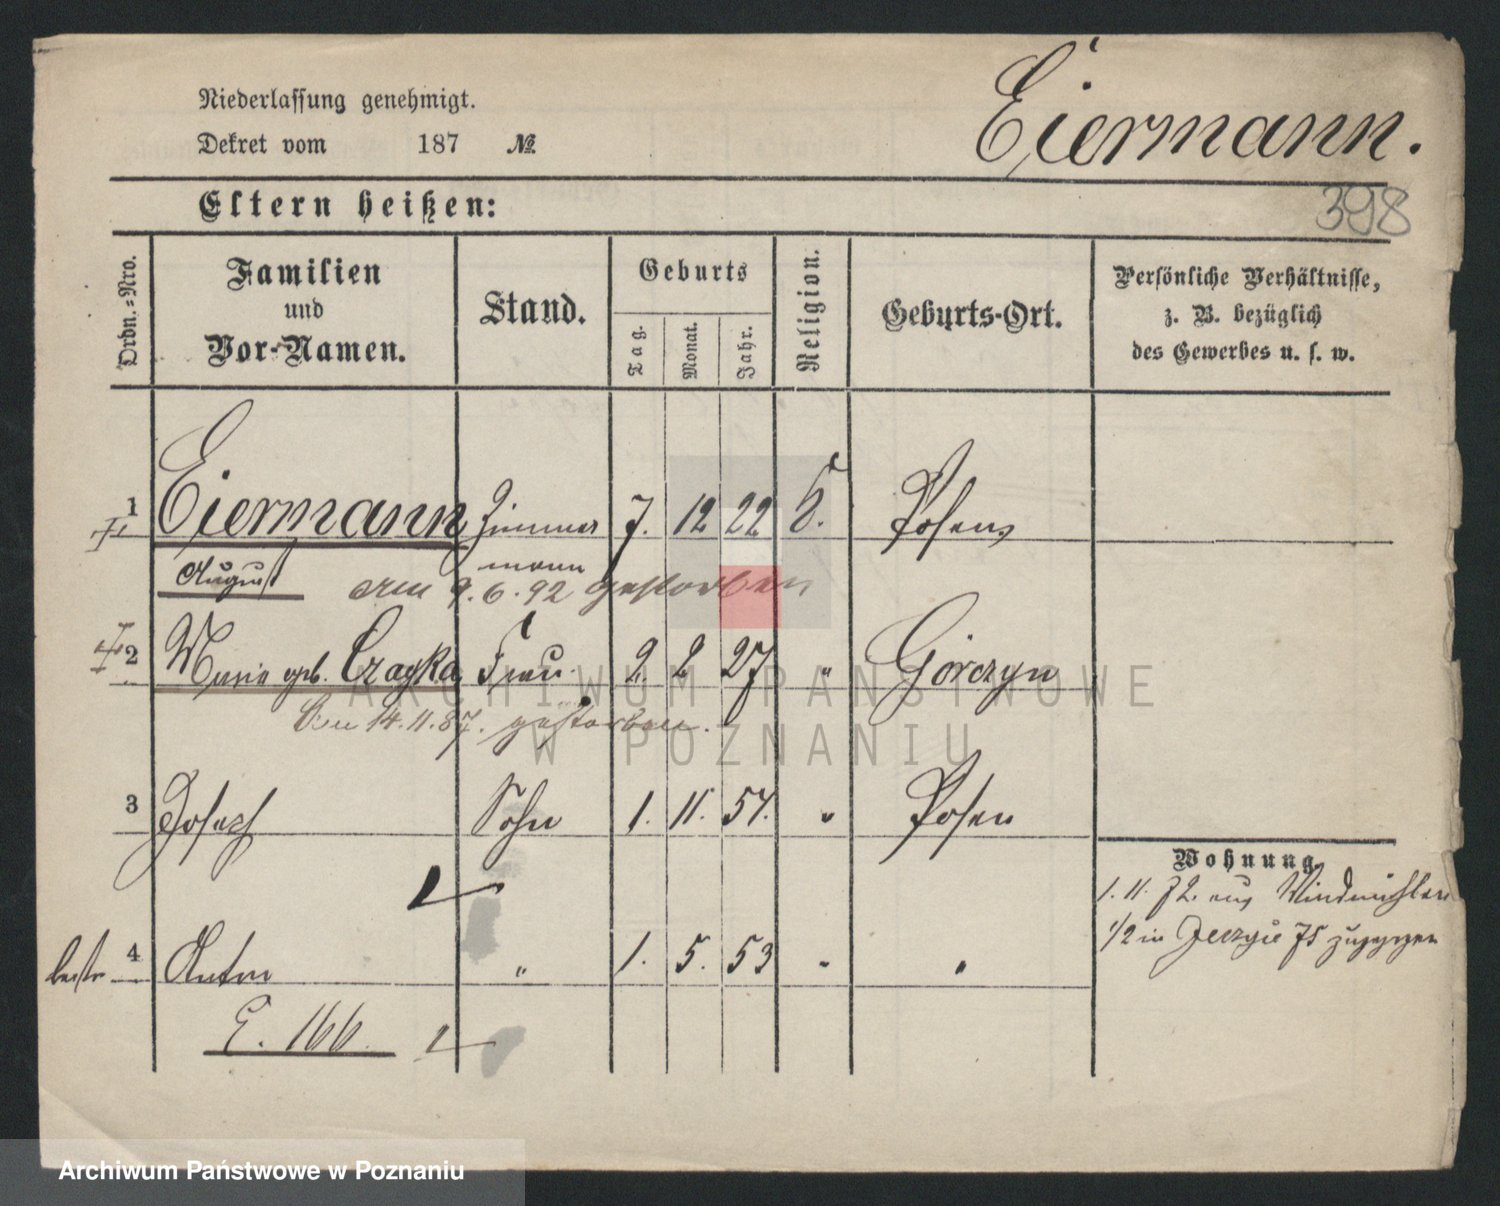 Niederlassung genehmigt.
Eiermann.
Dekret vom 187 №
398
Eltern heißen:
Ordn.=Nro.
Familien
und
Vor=Namen.
Stand.
Geburts
Tag.
Monat.
Jahr.
Religion.
Geburts=Ort.
Persönliche Verhältnisse,
z. B. bezüglich
des Gewerbes u. s. w.
1 Eiermann Zimmer 7. 12 22 Posen
August mann
am 9.6.92 gestorben
2 Maria geb. Czayka Frau 2. 2 27 " Górczyn
Den 14.11.87. gestorben.
3 Josef Sohn 1. 11. 57. " Posen
Wohnung.
1. 11. 72. aus Windmühlen
1/2 in Jerzyce 75 zugezogen
4 Anton " 1. 5. 53 " "
E. 166.
ARCHIWUM PAŃSTWOWE
W POZNANIU
Archiwum Państwowe w Poznaniu